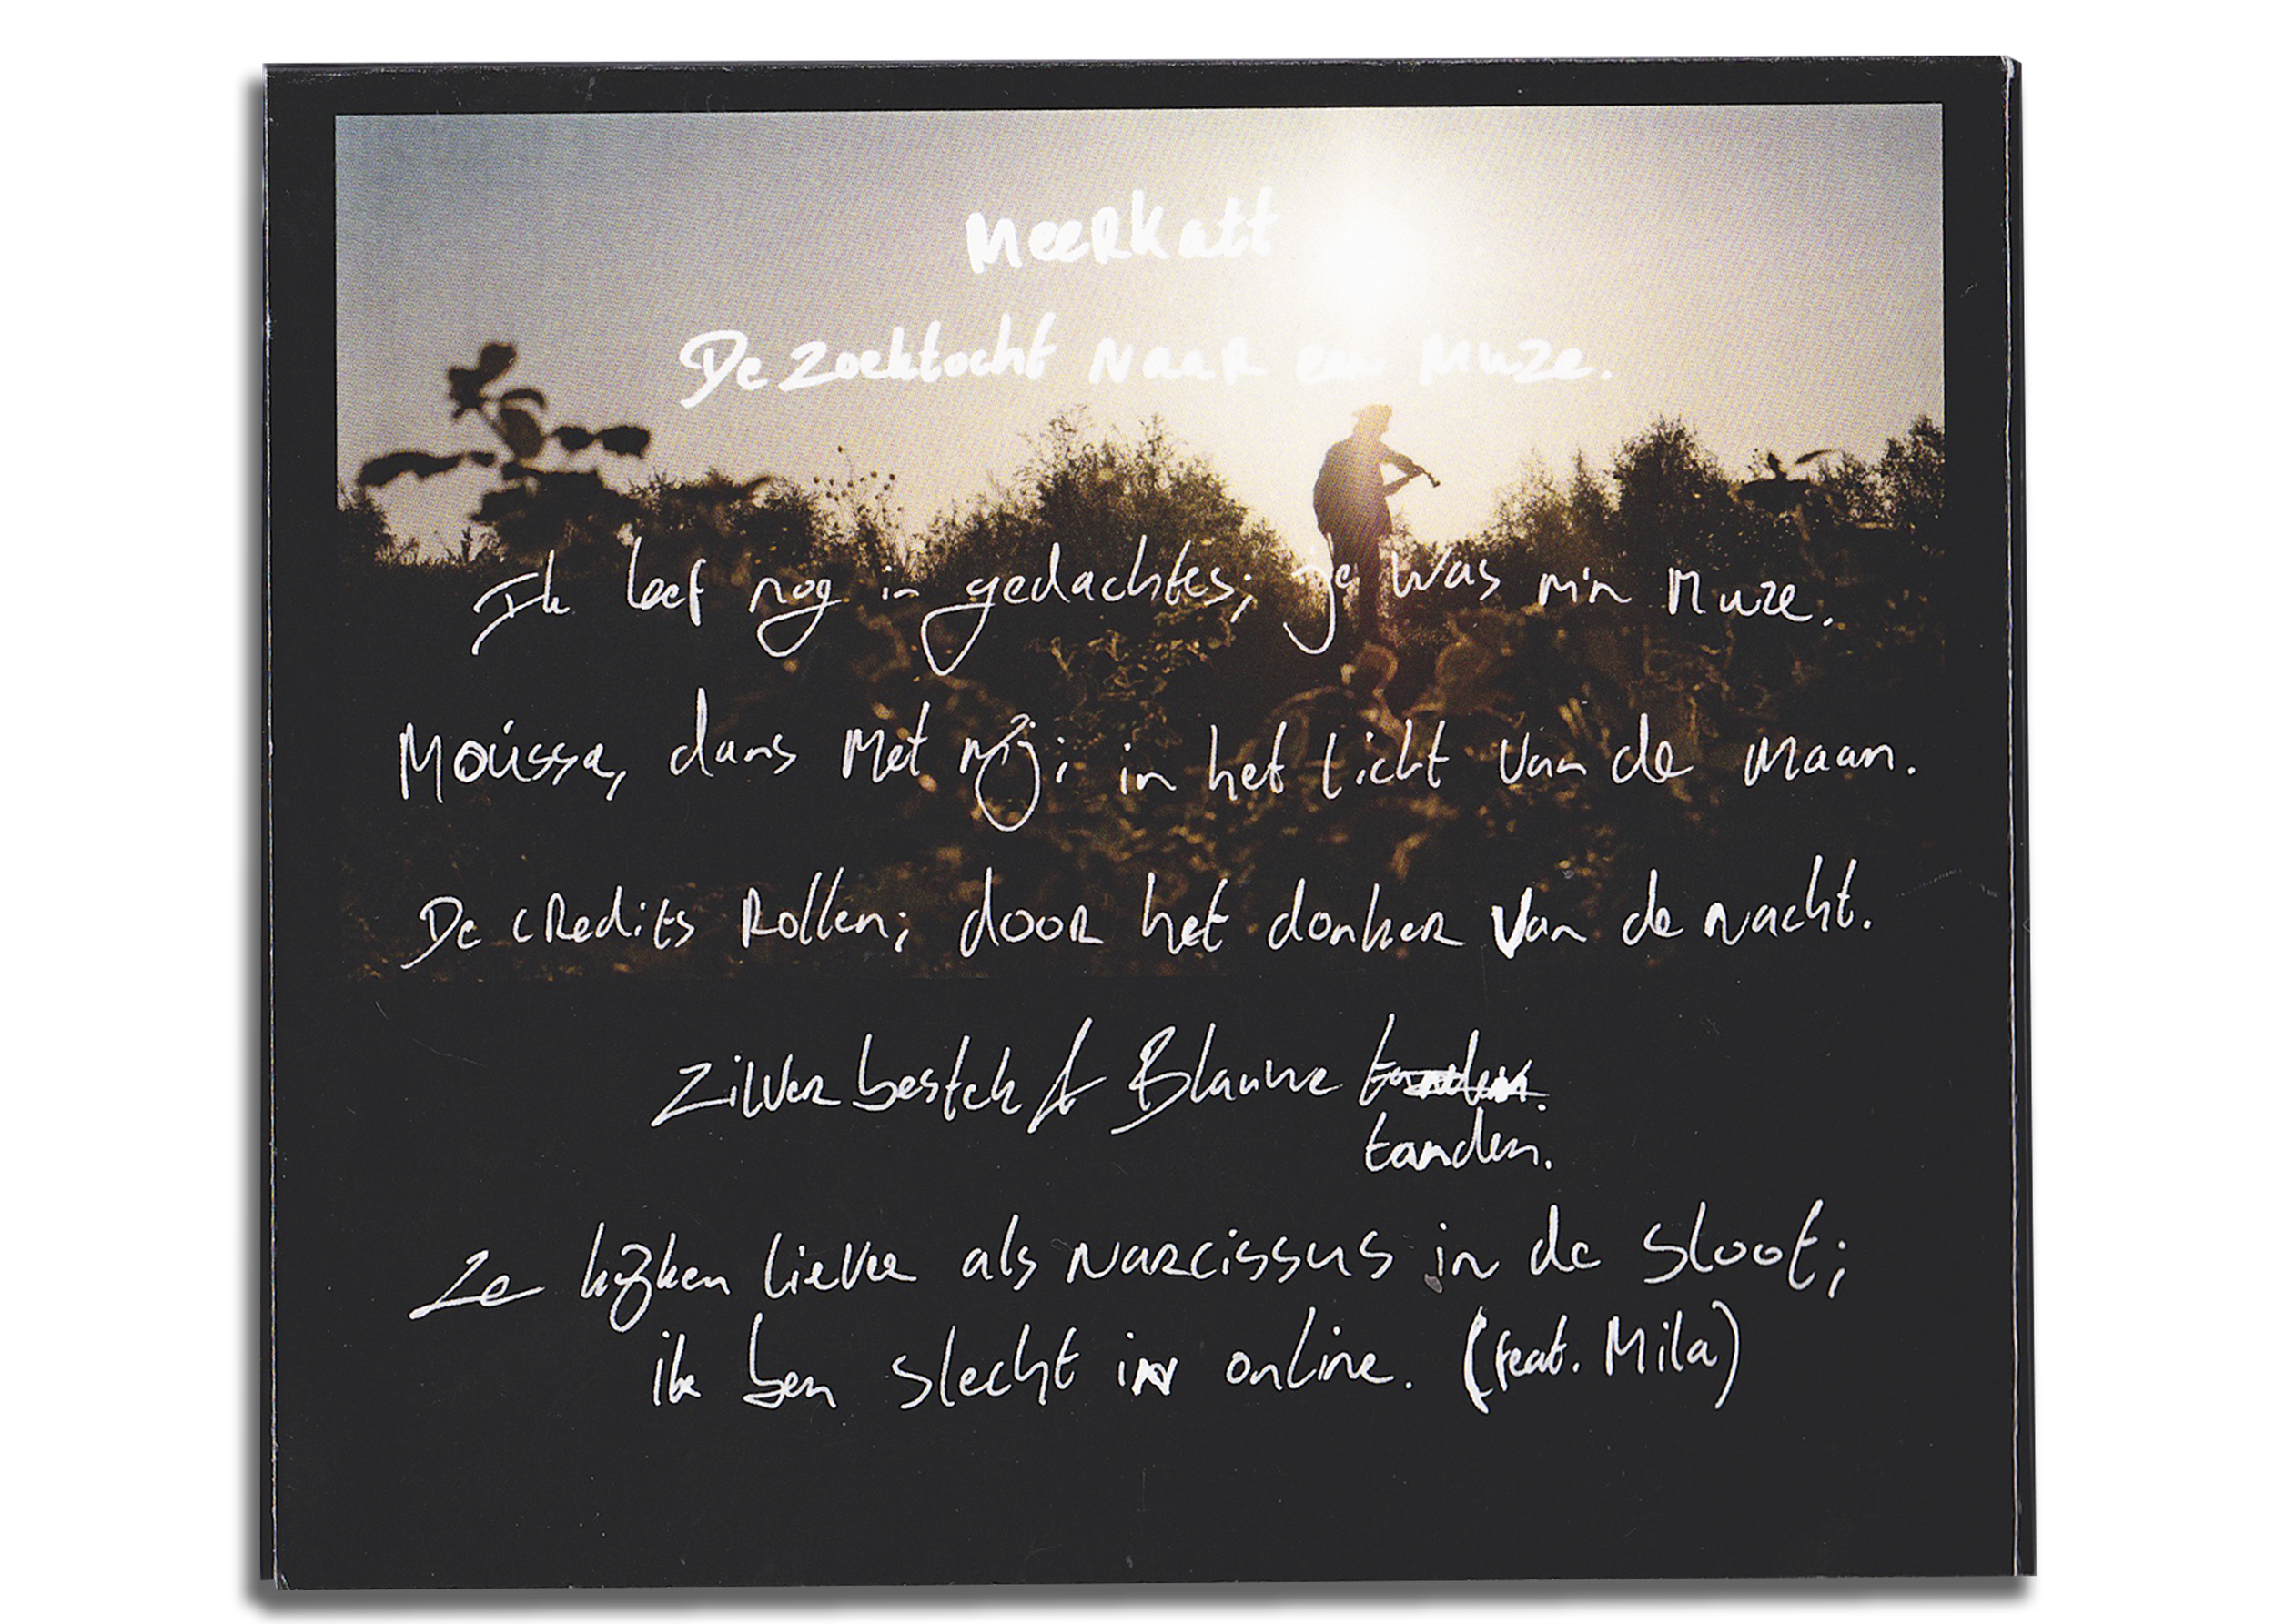 Meerkatt
De zoektocht naar een muze.
Ik leef nog in gedachtes; je was m'n muze.
Moússa, dans met mij; in het licht van de maan.
De credits rollen; door het donker van de nacht.
Zilver bestek & Blauwe tanden.
tanden.
Ze kijken liever als narcissus in de sloot;
ik ben slecht in online. (feat. Mila)